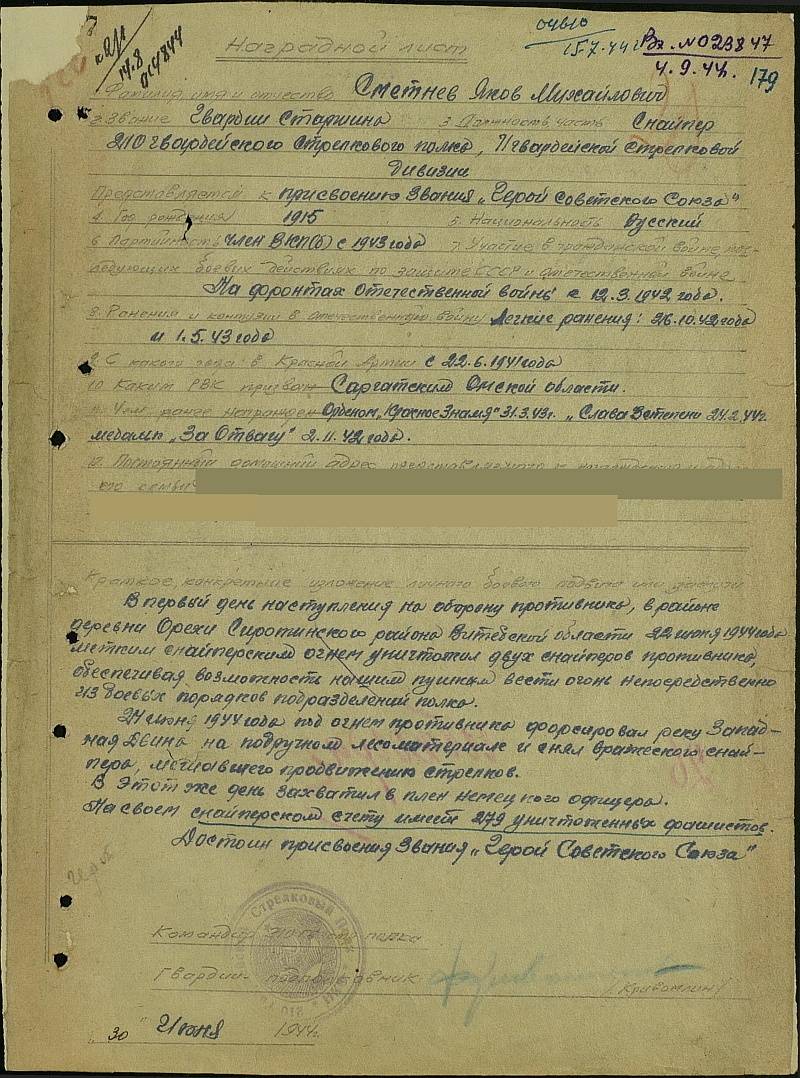 очью
15.7.44г
Вх. № 023847
4.9.44.
179
14.8
014844
Наградной лист
Фамилия, имя и отчество Сметнев Яков Михайлович
2. Звание Гвардии Старшина 3. Должность, часть Снайпер
210 гвардейского стрелкового полка, 71 гвардейской стрелковой
дивизии
Представляется к присвоению звания „Герой Советского Союза"
4. Год рождения 1915 5. Национальность Русский
6. Партийность Член ВКП(б) с 1943 года 7. Участие в гражданской войне, пос-
ледующих боевых действиях по защите СССР и отечественной войне
На фронтах отечественной войны с 12.3.1942 года.
8. Ранения и контузии в отечественную войну Легкие ранения: 26.10.42 года
и 1.5.43 года
9. С какого года в Красной Армии с 22.6.1941 года
10. Каким РВК призван Саргатским Омской области.
11. Чем ранее награжден Орденом „Красное Знамя" 31.3.43г. „Слава 3 степени 24.2.44г.
медалью „За Отвагу" 2.11.42 года.
12. Постоянный домашний адрес представляемого к награждению и адрес
его семьи
Краткое, конкретное изложение личного боевого подвига или заслуги
В первый день наступления на оборону противника, в районе
деревни Орехи Сиротинского района Витебской области 22 июня 1944 года
метким снайперским огнем уничтожил двух снайперов противника,
обеспечивая возможность нашим пушкам вести огонь непосредственно
из боевых порядков подразделений полка.
24 июня 1944 года под огнем противника форсировал реку Запад-
ная Двина на подручном лесоматериале и снял вражеского снай-
пера, мешавшего продвижению стрелков.
В этот же день захватил в плен немецкого офицера.
На своем снайперском счету имеет 279 уничтоженных фашистов.
Достоин присвоения Звания „Герой Советского Союза"
Командир 210 полка
Гвардии подполковник /Кривомлин/
Стрелковый
210
„30" Июня 1944г.